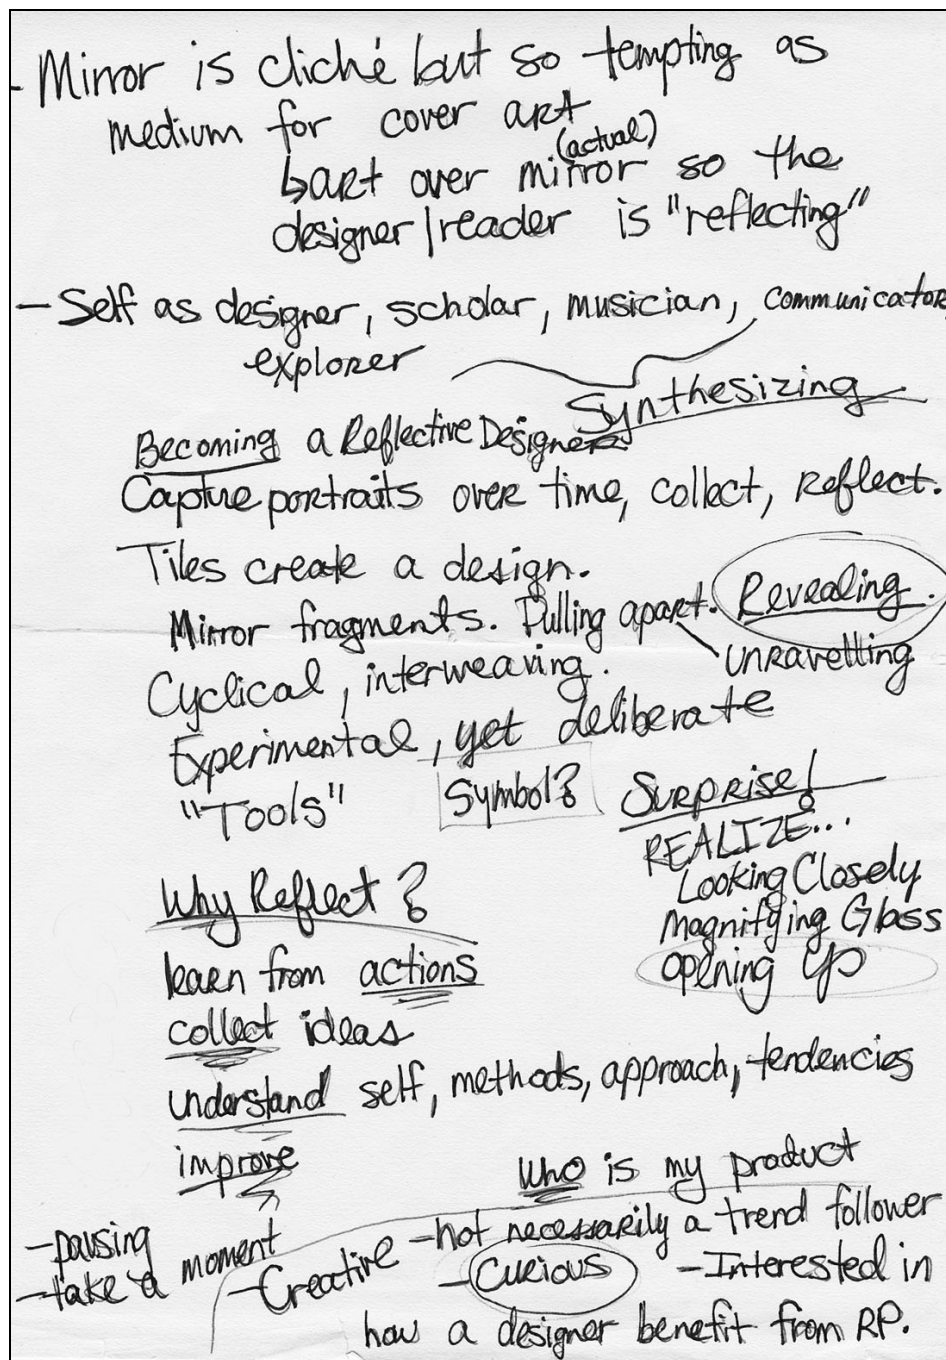 - Mirror is cliché but so tempting as
medium for cover art
↳ art over mirror (actual) so the
designer/reader is "reflecting"
- Self as designer, scholar, musician, communicator
explorer
Synthesizing
Becoming a Reflective Designer
Capture portraits over time, collect, reflect.
Tiles create a design.
Mirror fragments. Pulling apart. Revealing.
unravelling
Cyclical, interweaving.
Experimental, yet deliberate
"Tools" Symbol? Surprise!
REALIZE...
Looking Closely
Magnifying Glass
opening up
Why Reflect?
learn from actions
collect ideas
understand self, methods, approach, tendencies
improve
- pausing
- take a moment
Who is my product
- not necessarily a trend follower
- Creative - Curious - Interested in
how a designer benefit from RP.